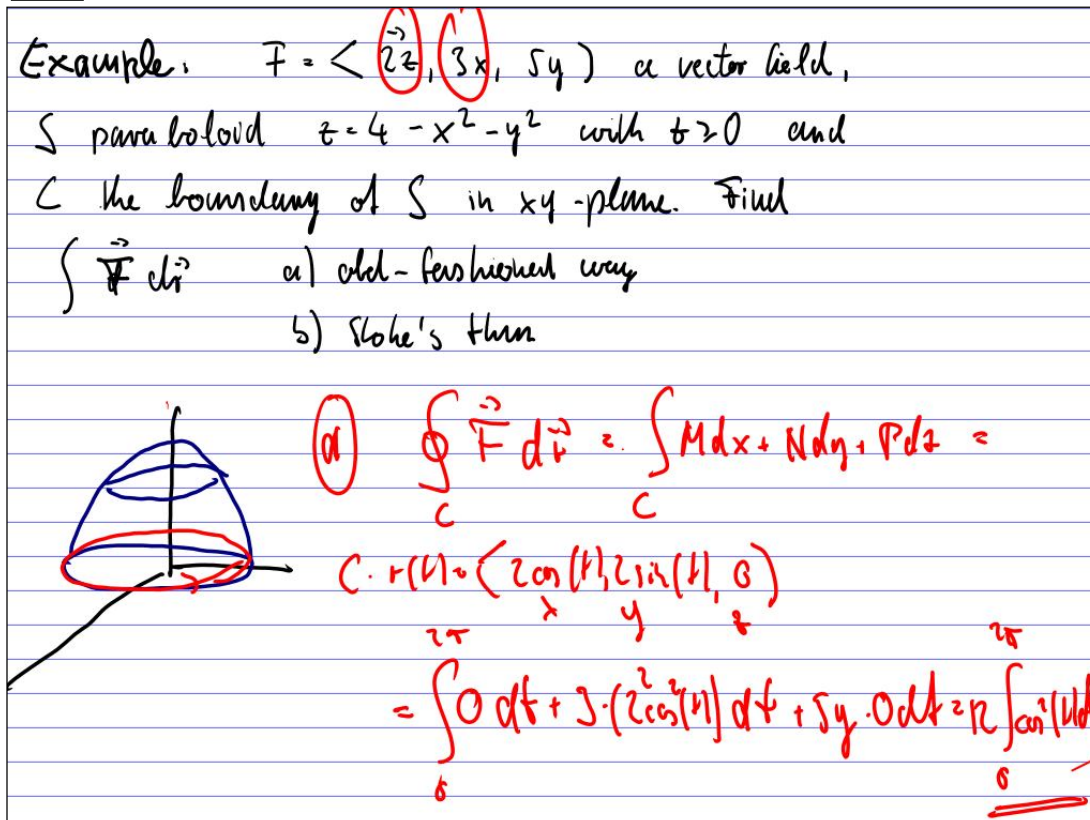 Example. F = < 2z, 3x, 5y ) a vector field,
S paraboloid z = 4 - x² - y² with z ≥ 0 and
C the boundary of S in xy-plane. Find
∫ F⃗ dr⃗ a) old-fashioned way
b) Stoke's thm
a ∮_C F⃗ dr⃗ = ∫_C Mdx + Ndy + Pdz =
C. r(t) = ( 2cos(t), 2sin(t), 0 )
x y z
= ∫_0^{2π} 0 dt + 3·(2²cos²(t)) dt + 5y · 0dt = 12 ∫_0^{2π} cos²(t)d